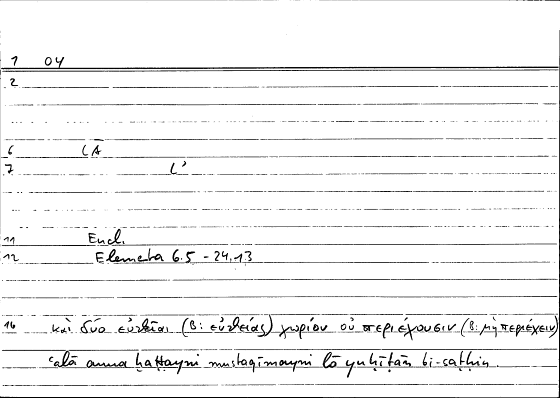 1 04
2
6 LĀ
7 L'
11 Eucl.
12 Elementa 6.5 - 24.13
16 καὶ δύο εὐθεῖαι (B: εὐθείας) χωρίον οὐ περιέχουσιν (B: μὴ περιέχειν)
ʿalā anna ḫaṭṭayni mustaqīmayni lā yuḥīṭāni bi-saṭḥin.